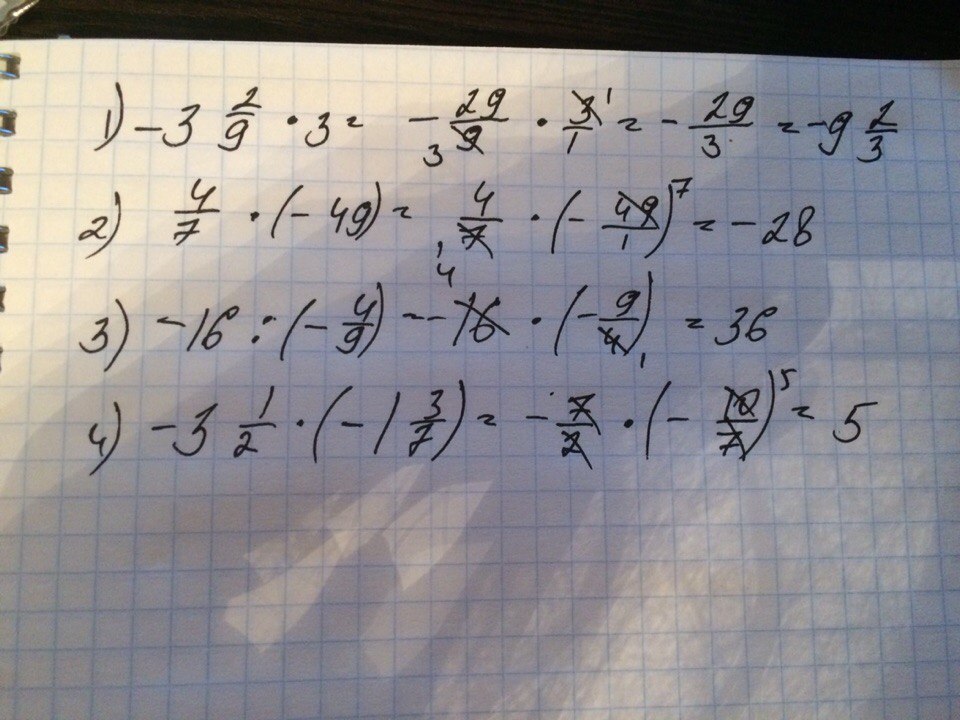 1) -3 2/9 · 3 = -29/9 3 · 3/1 1 = -29/3 = -9 2/3
2) 4/7 · (-49) = 4/7 1 · (-49/1) 7 = -28
3) -16 : (-4/9) = -16 4 · (-9/4) 1 = 36
4) -3 1/2 · (-1 3/7) = -7/2 · (-10/7) 5 = 5